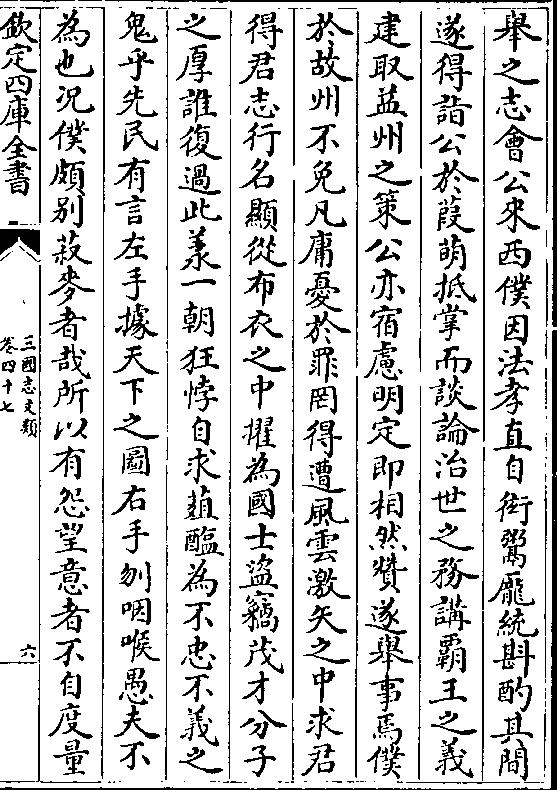 舉之志會公來西僕因法孝直自衒鬻龐統斟酌其間
遂得詣公於葭萌抵掌而談論治世之務講霸王之義
建取益州之策公亦宿慮明定即相然贊遂舉事焉僕
於故州不免凡庸憂於罪罔得遭風雲激矢之中求君
得君志行名顯從布衣之中擢為國士盜竊茂才分子
之厚誰復過此羕一朝狂悖自求葅醢為不忠不義之
鬼乎先民有言左手據天下之圖右手刎咽喉愚夫不
為也況僕頗别菽麥者哉所以有怨望意者不自度量
欽定四庫全書
三國志文類
卷四十七
六